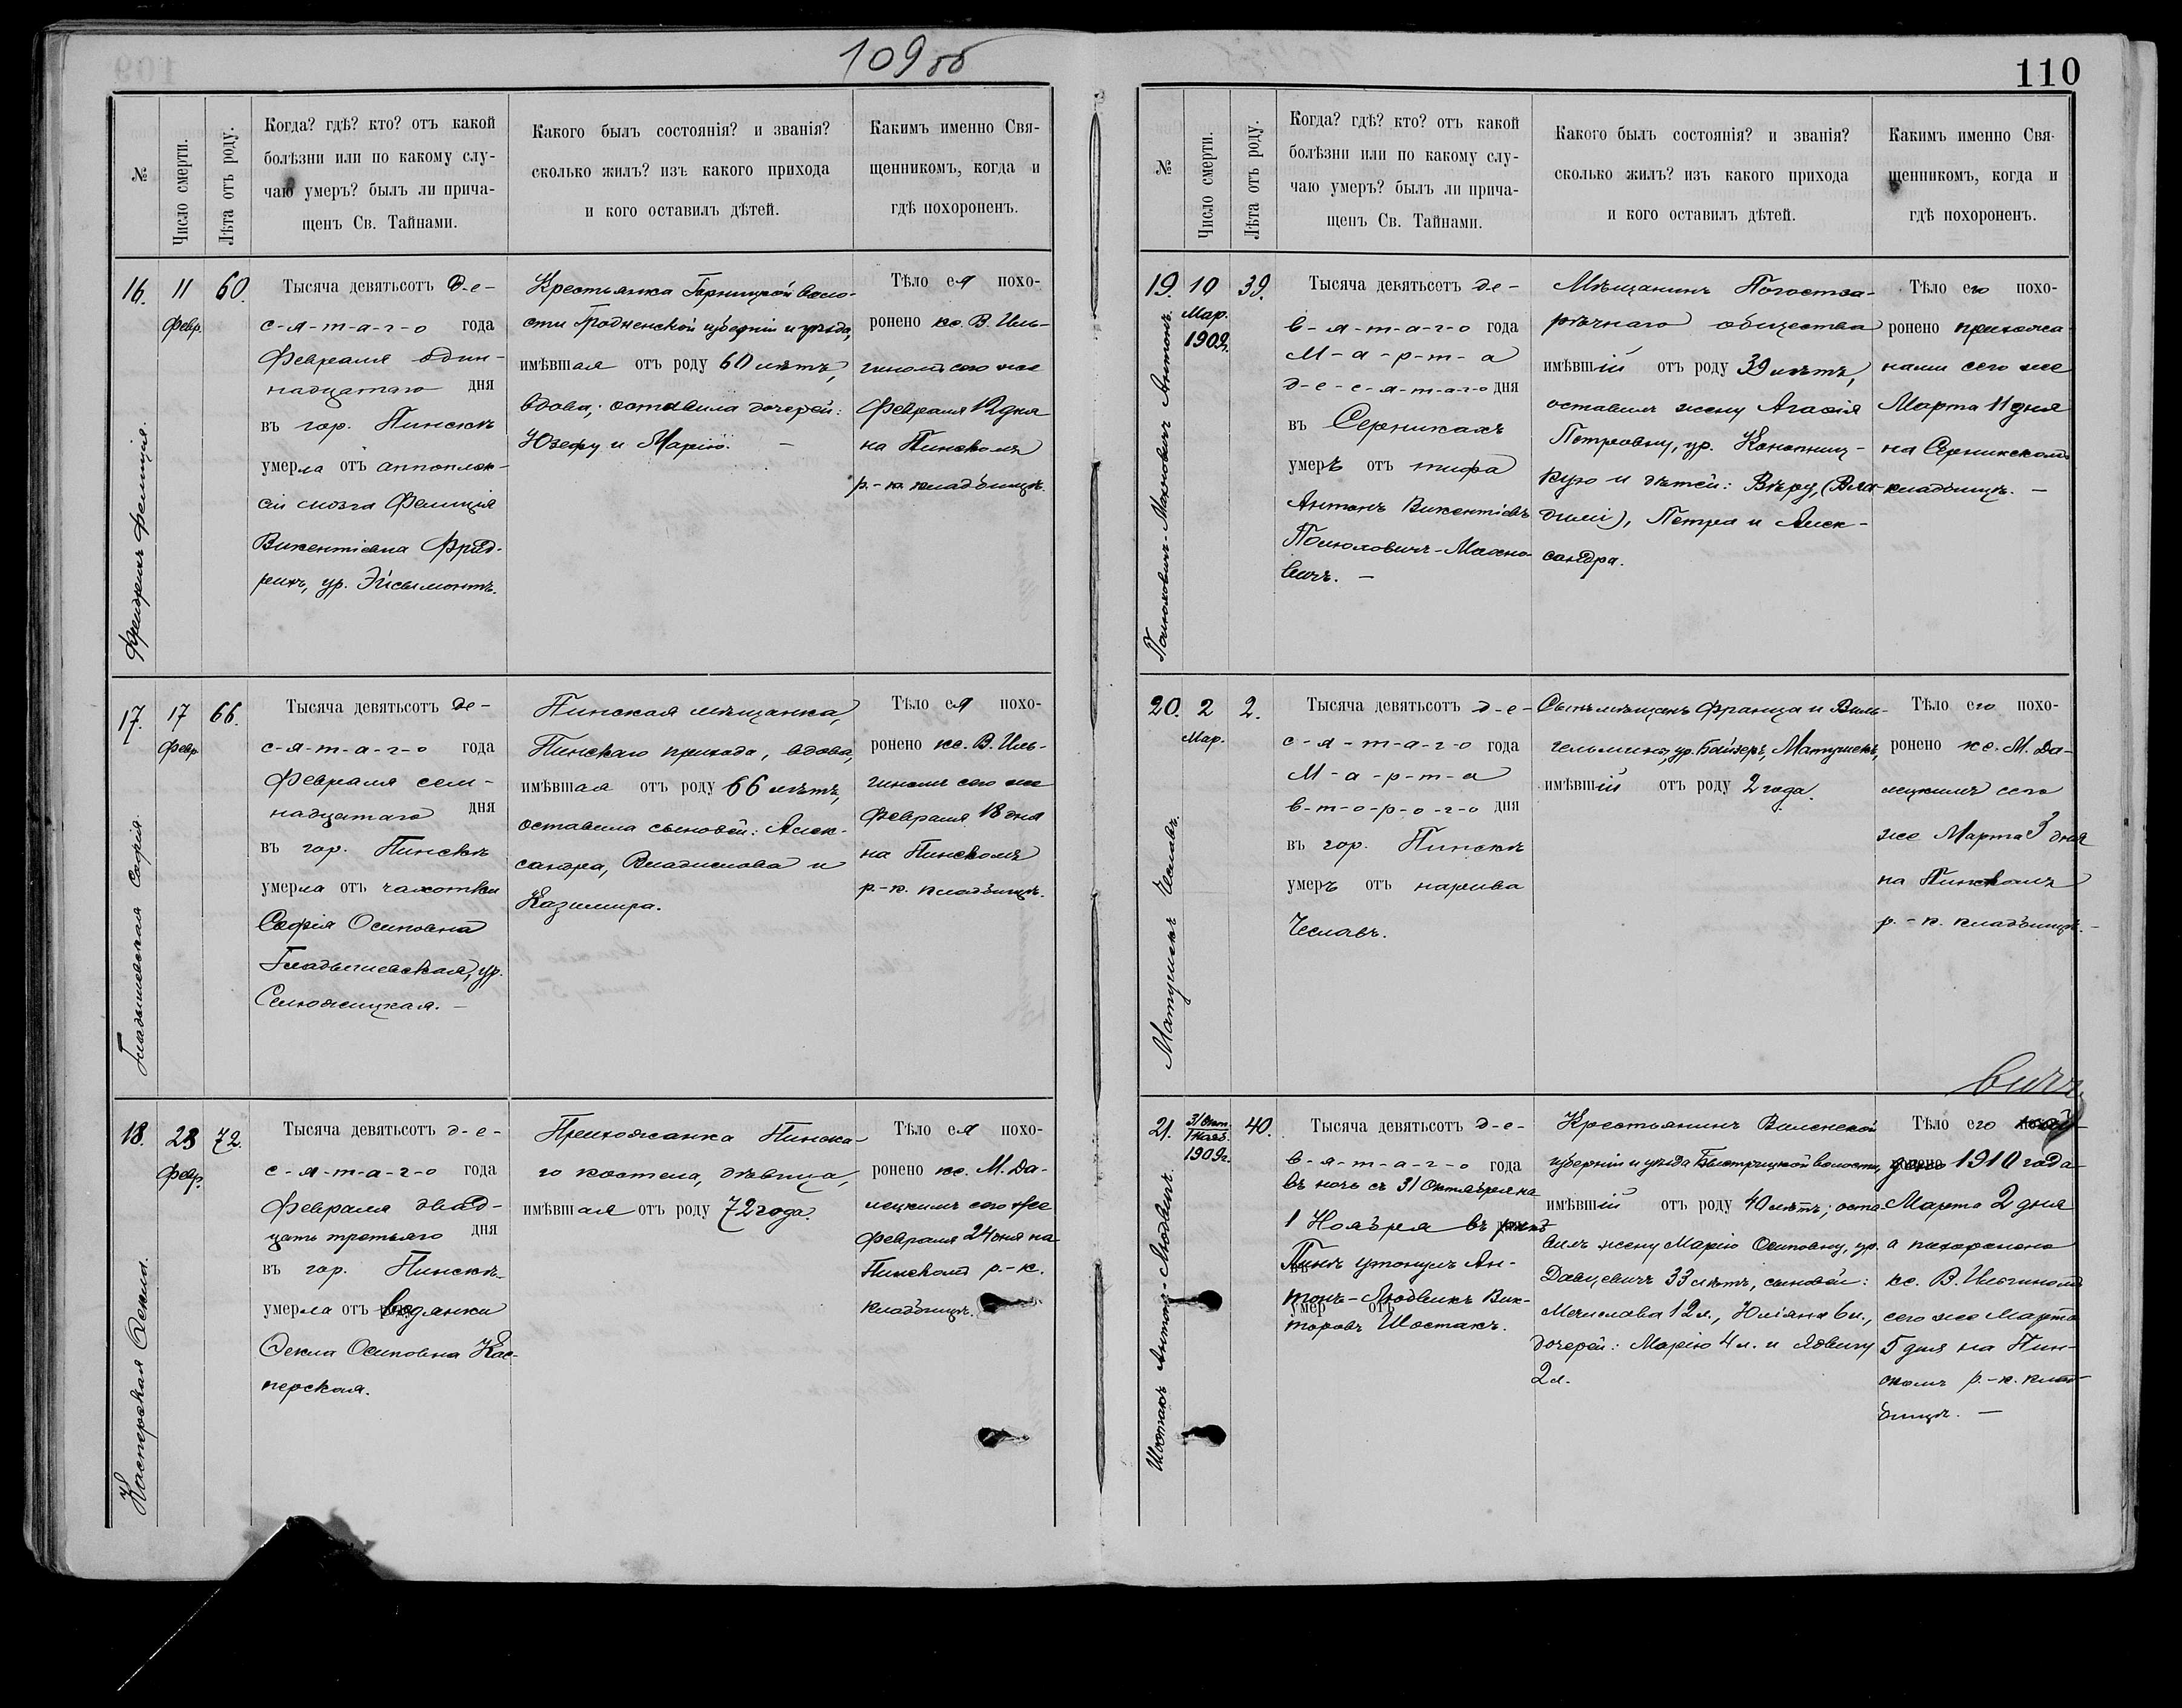 109 об
№
Число смерти.
Лѣта отъ роду.
Когда? гдѣ? кто? отъ какой
болѣзни или по какому слу-
чаю умеръ? былъ ли прича-
щенъ Св. Тайнами.
Какого былъ состоянія? и званія?
сколько жилъ? изъ какого прихода
и кого оставилъ дѣтей.
Какимъ именно Свя-
щенникомъ, когда и
гдѣ похороненъ.
16.
11
Февр.
60.
Фридрихъ Фелиція.
Тысяча девятьсотъ де-
с-я-т-а-г-о года
Февраля один-
надцатаго дня
въ гор. Пинскѣ
умерла отъ апоплек-
сіи мозга Фелиція
Викентіевна Фрид-
рихъ, ур. Эйсымонтъ.
Крестьянка Горницкой воло-
сти Гродненской губерніи и уѣзда,
имѣвшая отъ роду 60 лѣтъ,
вдова; оставила дочерей:
Юзефу и Марію. —
Тѣло ея похо-
ронено кс. В. Иль-
гиномъ сего же
Февраля 12 дня
на Пинскомъ
р.-к. кладбищѣ.
17.
17
Февр.
66.
Гладышевская Софія.
Тысяча девятьсотъ де-
с-я-т-а-г-о года
Февраля сем-
надцатаго дня
въ гор. Пинскѣ
умерла отъ чахотки
Софія Осиповна
Гладышевская, ур.
Селюжицкая. —
Пинская мѣщанка,
Пинскаго прихода, вдова,
имѣвшая отъ роду 66 лѣтъ,
оставила сыновей: Алек-
сандра, Владислава и
Казимира.
Тѣло ея похо-
ронено кс. В. Иль-
гиномъ сего же
Февраля 18 дня
на Пинскомъ
р.-к. кладбищѣ.
18.
23
Февр.
72.
Касперская Текля.
Тысяча девятьсотъ д-е-
с-я-т-а-г-о года
Февраля двад-
цать третьяго дня
въ гор. Пинскѣ
умерла отъ водянки
Текла Осиповна Кас-
перская.
Прихожанка Пинска-
го костела, дѣвица,
имѣвшая отъ роду 72 года.
Тѣло ея похо-
ронено кс. М. Да-
лецкимъ сего же
Февраля 24 дня на
Пинскомъ р.-к.
кладбищѣ.
110
№
Число смерти.
Лѣта отъ роду.
Когда? гдѣ? кто? отъ какой
болѣзни или по какому слу-
чаю умеръ? былъ ли прича-
щенъ Св. Тайнами.
Какого былъ состоянія? и званія?
сколько жилъ? изъ какого прихода
и кого оставилъ дѣтей.
Какимъ именно Свя-
щенникомъ, когда и
гдѣ похороненъ.
19.
10
Мар.
1909г.
39.
Полюховичъ-Махновичъ Антонъ.
Тысяча девятьсотъ де-
в-я-т-а-г-о года
М-а-р-т-а
д-е-с-я-т-а-г-о дня
въ Серникахъ
умеръ отъ тифа
Антонъ Викентіевъ
Полюховичъ-Махно-
вичъ. —
Мѣщанинъ Погостза-
рѣчнаго общества
имѣвшій отъ роду 39 лѣтъ,
оставилъ жену Агафія
Петровну, ур. Конопниц-
кую и дѣтей: Вѣру, (Вла-
), Петра и Алек-
сандра.
Тѣло его похо-
ронено прихожа-
нами сего же
Марта 11 дня
на Серникскомъ
кладбищѣ. —
20.
2
Мар.
2.
Матушекъ Чеславъ.
Тысяча девятьсотъ д-е-
с-я-т-а-г-о года
М-а-р-т-а
в-т-о-р-о-г-о дня
въ гор. Пинскѣ
умеръ отъ нарыва
Чеславъ.
Сынъ мѣщанъ Франца и Виль-
гельмины, ур. Байзеръ, Матушекъ,
имѣвшій отъ роду 2 года.
Тѣло его похо-
ронено кс. М. Да-
лецкимъ сего
же Марта 3 дня
на Пинскомъ
р.-к. кладбищѣ. —
21.
31 Окт.
1 Нояб.
1909г.
40.
Шостакъ Антонъ-Людвигъ.
Тысяча девятьсотъ д-е-
в-я-т-а-г-о года
въ ночь съ 31 Октября на
1 Ноября въ рѣкѣ
Пинѣ утонулъ Ан-
тонъ-Людвикъ Вик-
умер отъ
торовъ Шостакъ.
Крестьянинъ Виленской
губерніи и уѣзда Быстрицкой волости,
имѣвшій отъ роду 40 лѣтъ; оста-
вилъ жену Марію Осиповну, ур.
Давцевичъ 33 лѣтъ, сыновей:
Мечислава 12 л., Юліана 6 л.,
дочерей: Марію 4 л. и Ядвигу
2 л.
Тѣло его
1910 года
Марта 2 дня
а похоронено
кс. В. Ильгиномъ
сего же Марта
5 дня на Пин-
скомъ р.-к. клад-
бищѣ. —